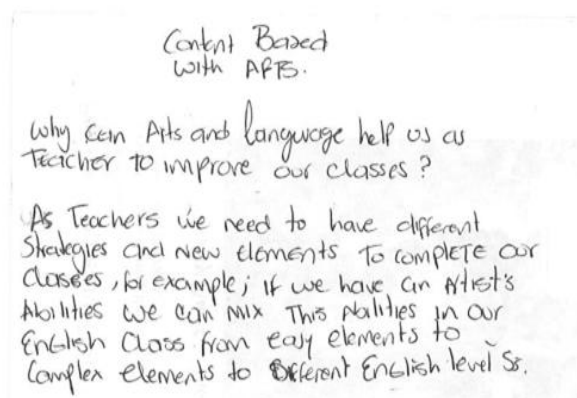 Content Based
with ARTS.
Why can Arts and language help us as
Teacher to improve our classes?
As Teachers we need to have different
Strategies and New elements To complete our
Classes, for example; if we have an Artist's
Abilities we can mix This Nalities in our
English Class from easy elements to
Complex elements to Different English level Ss.